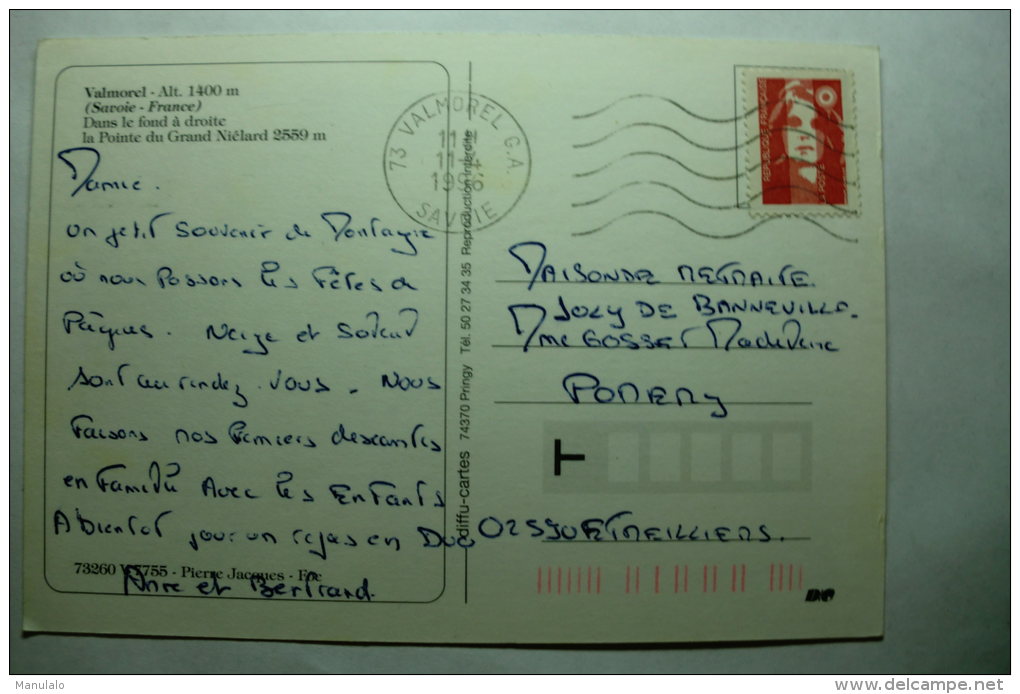 Valmorel - Alt. 1400 m
(Savoie - France)
Dans le fond à droite
la Pointe du Grand Niélard 2559 m
Mamie.
un petit souvenir de Montagne
où nous passons les Fêtes de
Pâques. Neige et Soleil
sont au rendez-vous. Nous
faisons nos premiers descentes
en famille Avec les Enfants
A bientôt pour un repas en Duo
Anne et Bertrand.
73260 - Pierre Jacques -
diffu-cartes 74370 Pringy Tél. 50 27 34 35 Reproduction interdite
73 VALMOREL G.A.
11 H
1996
SAVOIE
REPUBLIQUE FRANÇAISE
LA POSTE
MAISON DE RETRAITE.
JOLY DE BANNEVILLE.
Mme GOSSET Madeleine
POMERY
T
02
Manulalo
delcampe.net